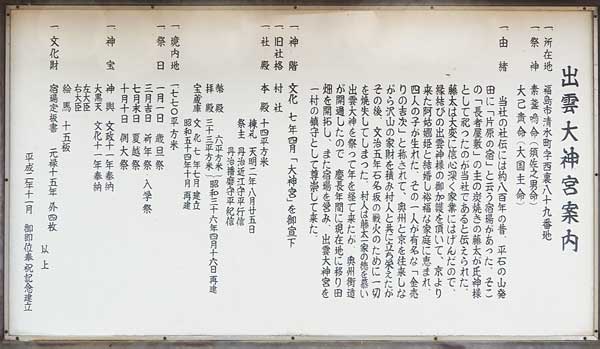 出雲大神宮案内
一、所在地　福島市清水町字西裏八十九番地
一、祭神　素盞鳴命（須佐之男命）
大己貴命（大国主命）
一、由緒
当社の社伝には約八百年の昔、平石の山発
田に「片原の宿」と云う宿場があった。そこ
の「長者屋敷」の主の炭焼きの藤太が氏神様
として祀ったのが当社であると伝えられた。
藤太は大変に信心深く家業にはげんだので、
縁結びの出雲神様の御加護を頂いて、京より
来た阿姑媚姫と結婚し裕福な家庭に恵まれ、
四人の子が生れた。その一人が有名な「金売
りの吉次」と称されて、奥州と京を往来しな
がら沢山の家財を積み村人と共に立ち栄えたが
その後、文治五年石名坂の戦火のために一切
を焼失してしまった。村人は藤太一家の徳を慕い
出雲大神を祭って年を経て来たが、奥州街道
が開通したので、慶長年間に現在地に移り田
畑を開拓し、また宿場を営み、出雲大神宮を
一村の鎮守として尊崇して来た。
一、神階　文化七年四月「大神宮」を御宣下
一、旧社格　村社
一、社殿　本殿　十四平方米
棟札　天明二年八月廿五日
祭主　丹治近江守平行信
丹治播磨守平紀信
幣殿　六平方米
拝殿　三十三平方米（昭和三十六年四月十六日再建
宝蔵庫　文化七年七月建立
昭和五十四年十月再建
一、境内地　一七七〇平方米
一、祭日　一月一日　歳旦祭
三月吉日　祈年祭　入学祭
七月末日　夏越祭
十月十日　例大祭
一、神宝　神輿　文政十一年奉納
大黒天　文化十一年奉納
左大臣
右大臣
絵馬　十五板
一、文化財　宿場定板書　元禄十五年　外四枚
以上
平成二年十一月　御即位奉祝記念建立